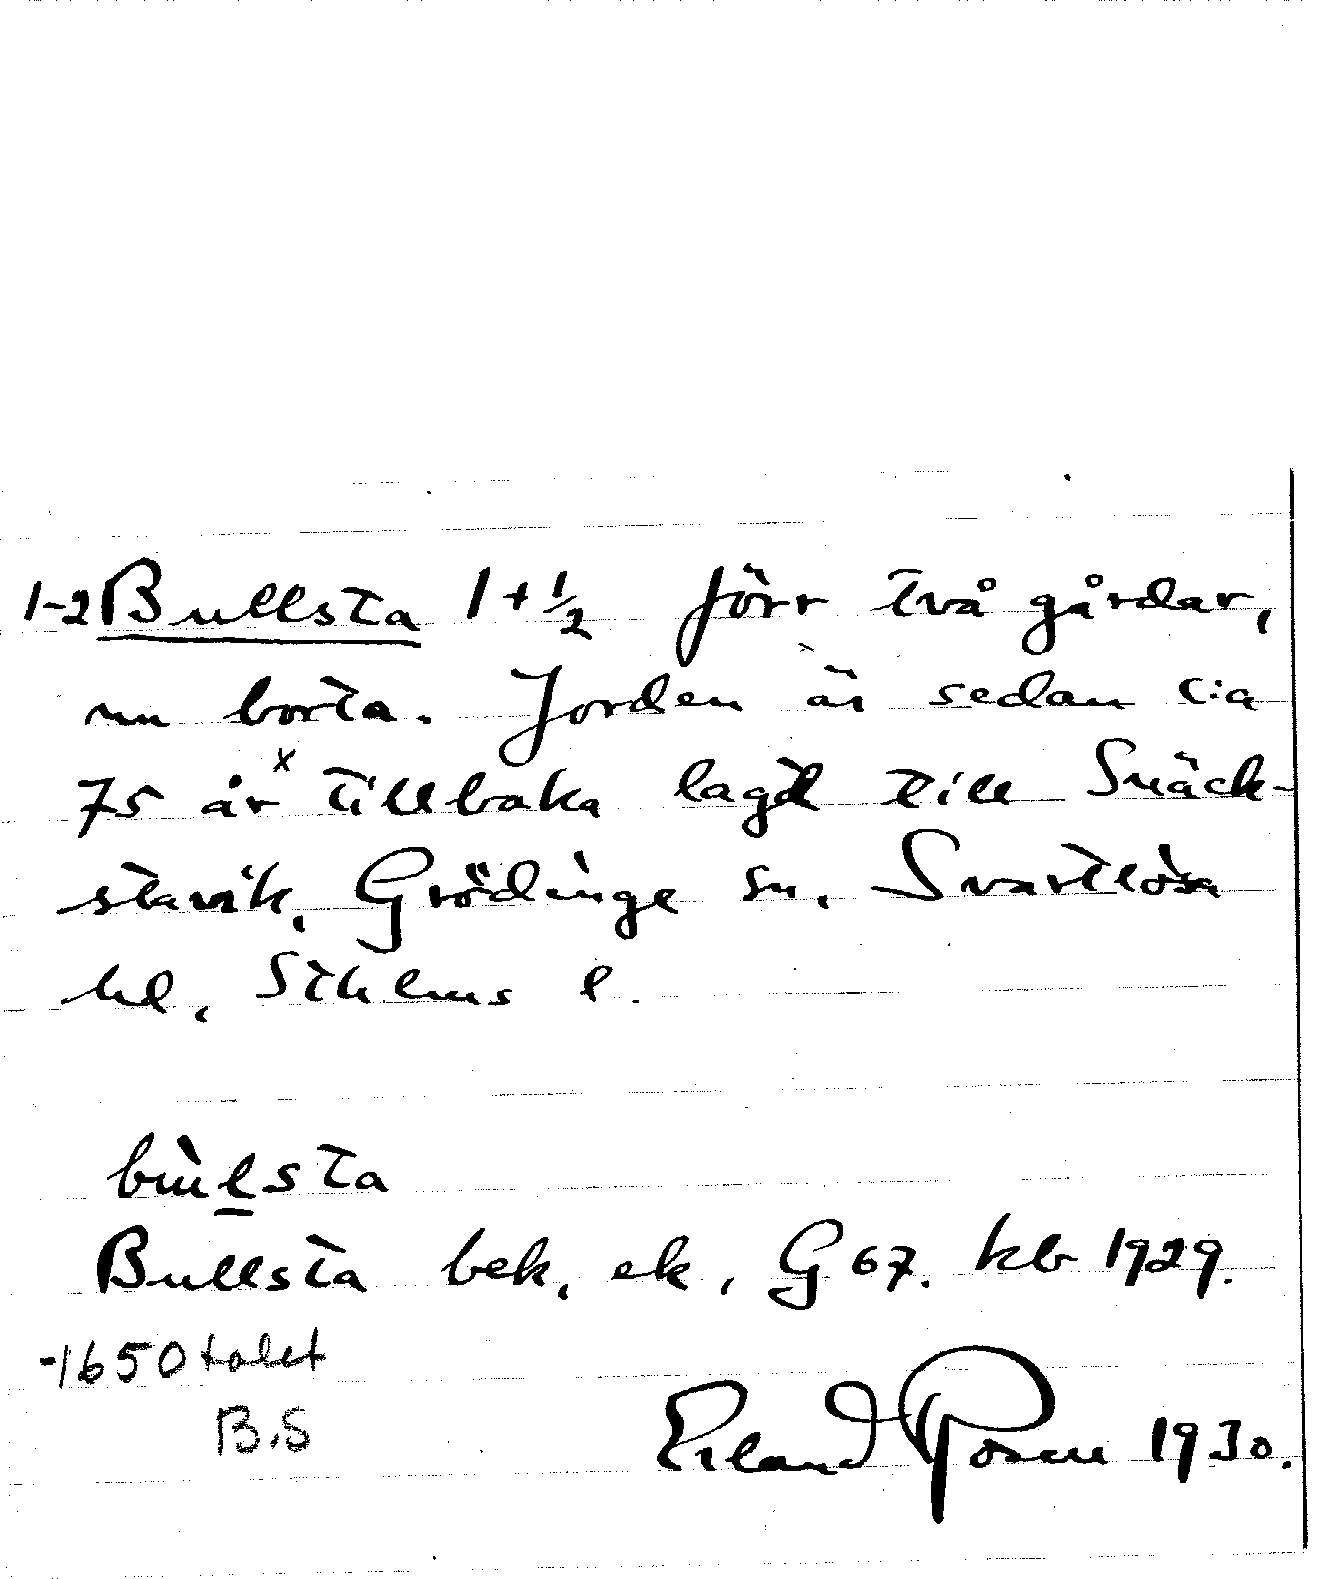 1-2 Bullsta 1 + ½ förr två gårdar,
nu borta. Jorden är sedan c:a
75 år x tillbaka lagd till Snäck-
stavik, Grödinge sn, Svartlösa
hd, Sthlms l.
bùlsta
Bullsta bek, ek, G 67. kb 1929.
-1650 talet
B.S
Erland Rosell 1930.